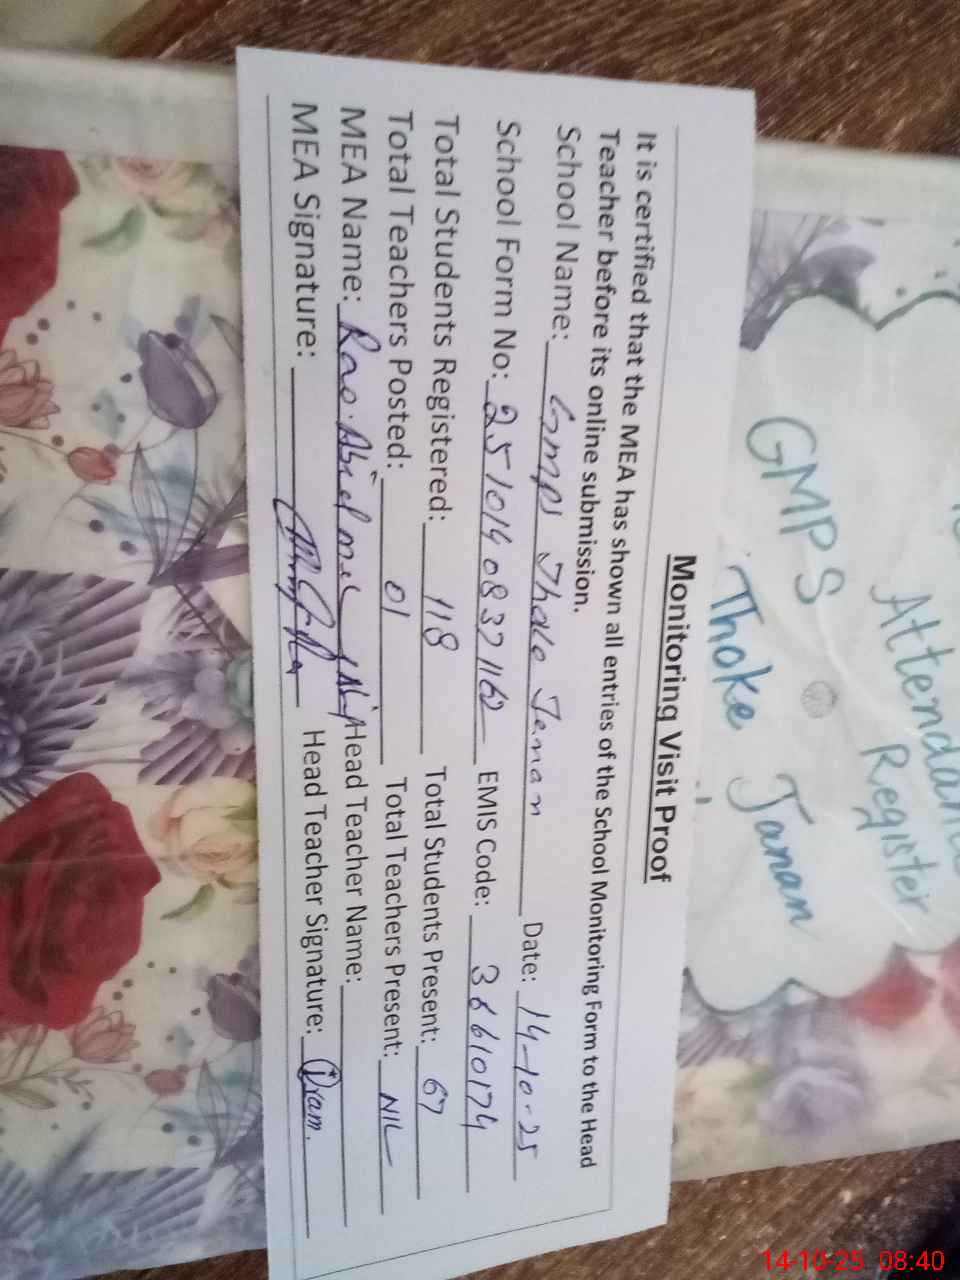 Attendance
Register
GMPS
Thoke Janan
Monitoring Visit Proof
It is certified that the MEA has shown all entries of the School Monitoring Form to the Head
Teacher before its online submission.
School Name: GMPS Thale Janan Date: 14-10-25
School Form No: 25101408371162 EMIS Code: 36610174
Total Students Registered: 118 Total Students Present: 67
Total Teachers Posted: 01 Total Teachers Present: NIL
MEA Name: Rao. Head Teacher Name:
MEA Signature: Head Teacher Signature:
14-10-25 08:40